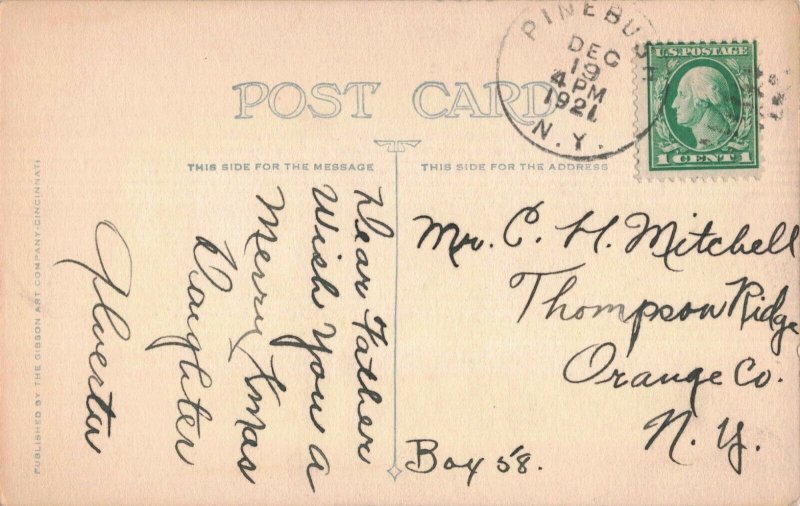 PINEBUSH
DEC
19
4 PM
1921
N.Y.
U.S. POSTAGE
1 CENT 1
POST CARD
THIS SIDE FOR THE MESSAGE
THIS SIDE FOR THE ADDRESS
Dear Father
Wish You a
Merry Xmas
Daughter
Mr. C. H. Mitchell
Thompson Ridge
Orange Co.
N. Y.
Box 58.
PUBLISHED BY THE GIBSON ART COMPANY, CINCINNATI